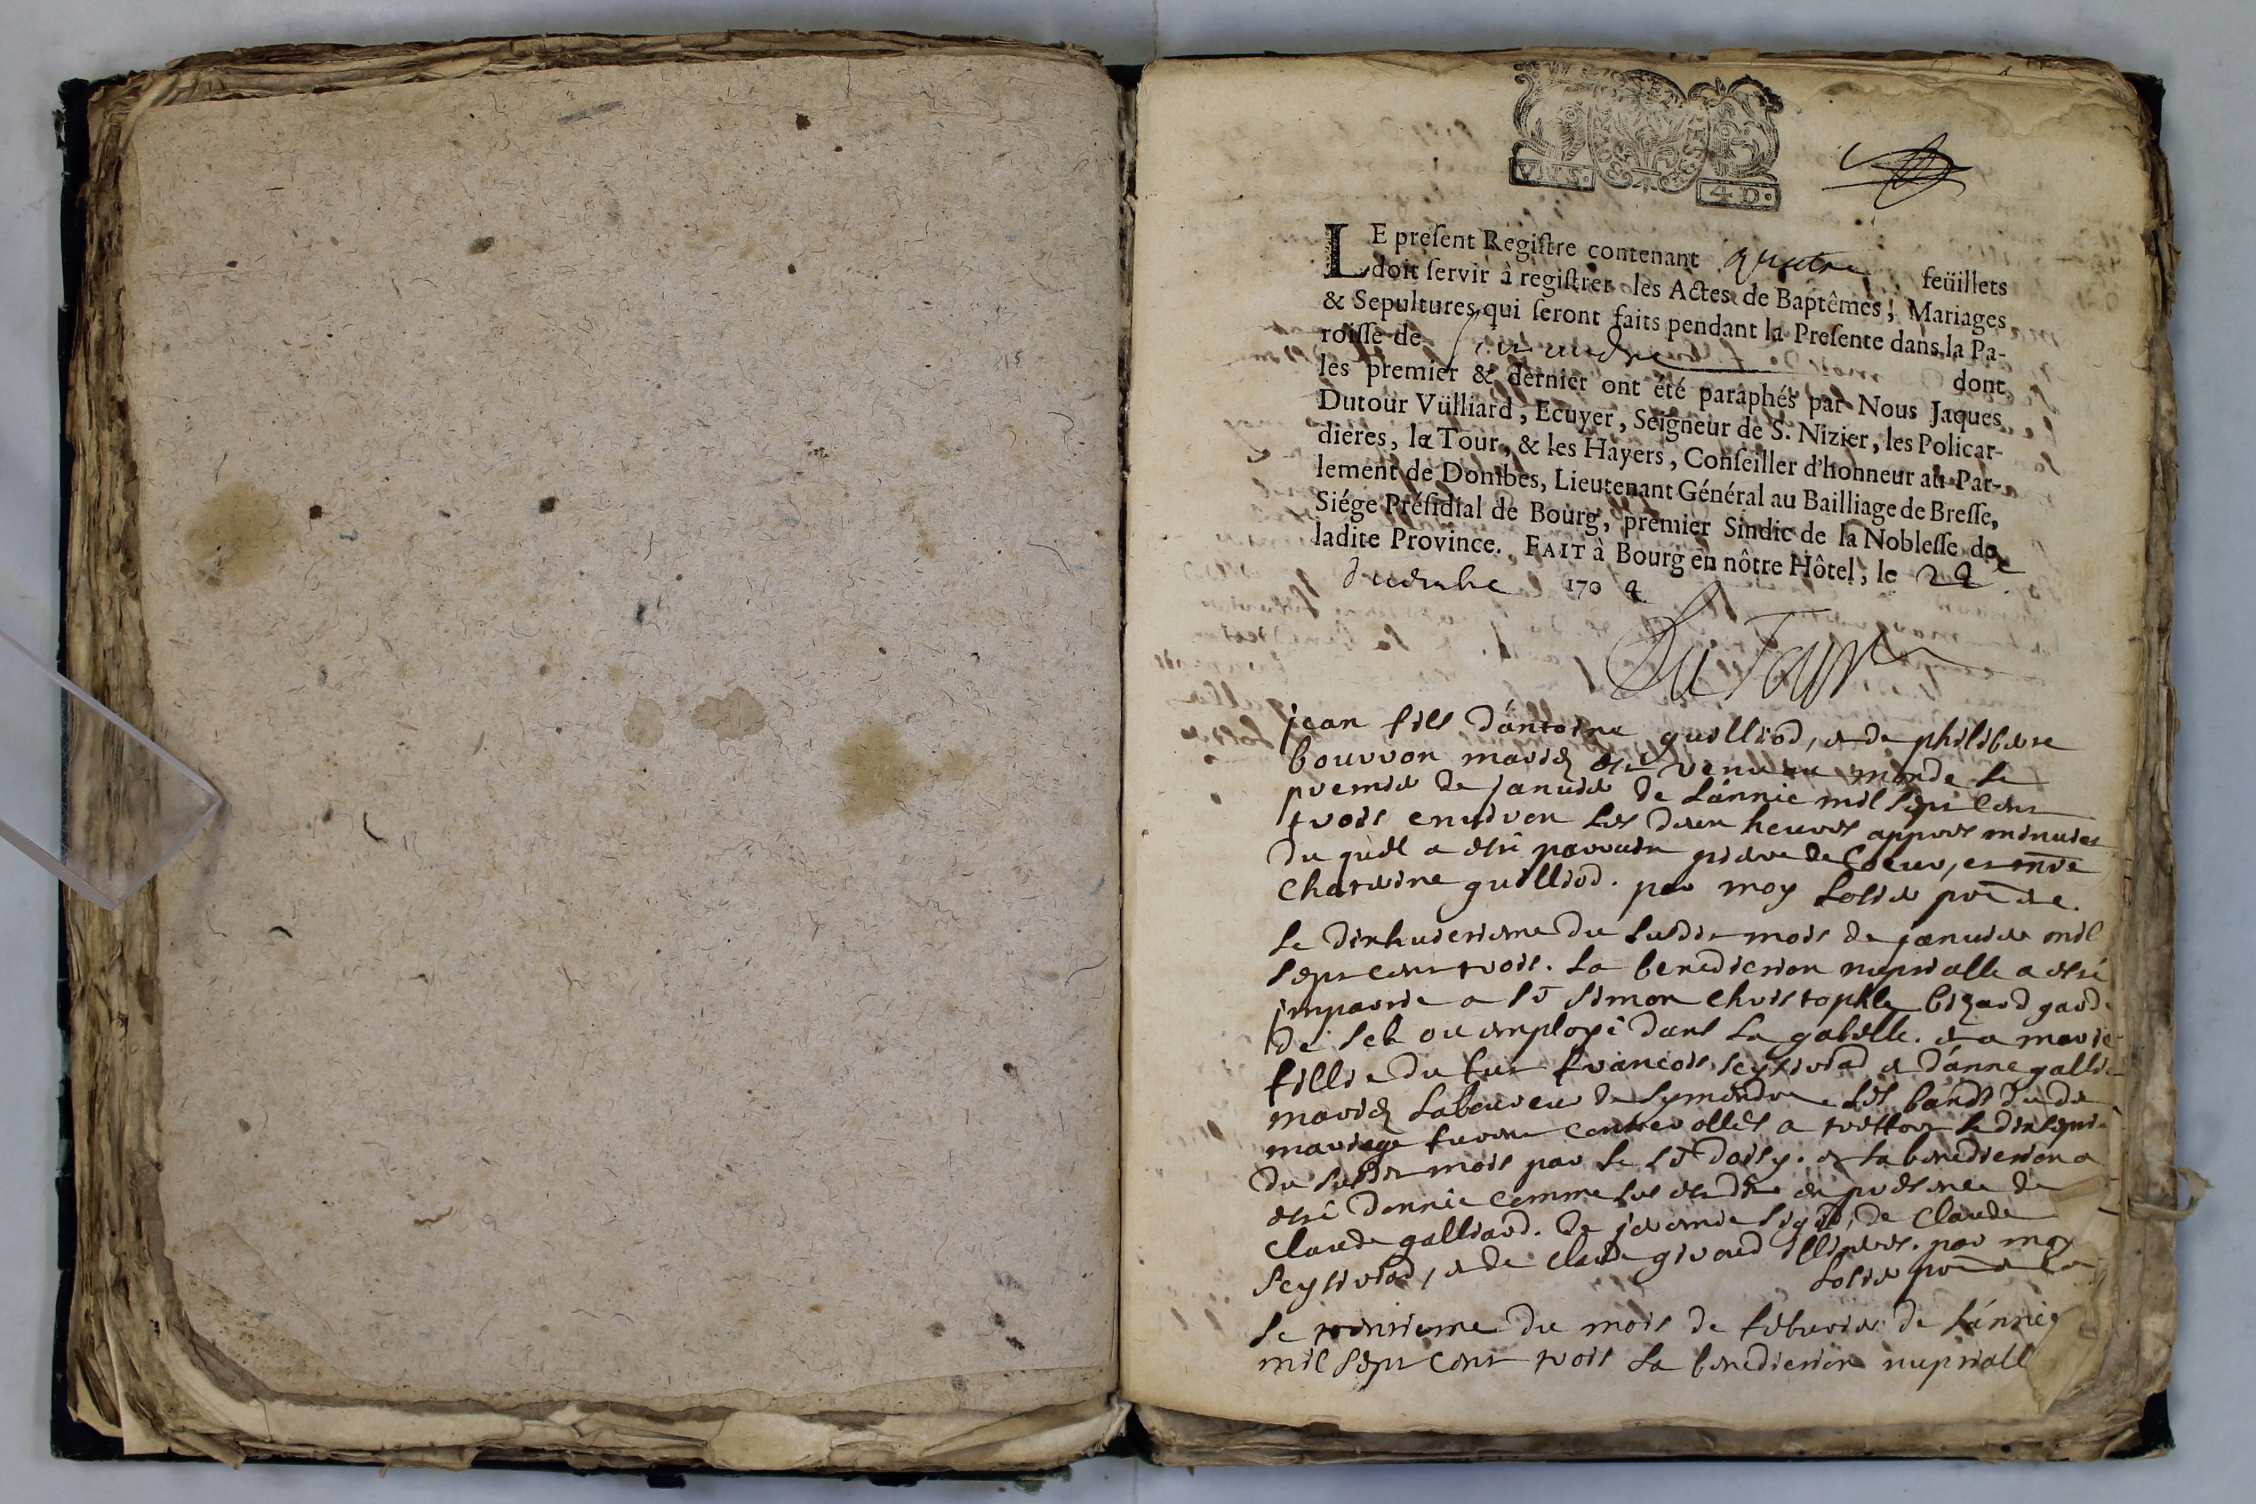 4 D.
LE preſent Regiſtre contenant quatre feüillets
doit ſervir à regiſtrer les Actes de Baptêmes, Mariages
& Sepultures qui ſeront faits pendant la Preſente dans la Pa-
roiſſe de dont
les premier & dernier ont été paraphés par Nous Jaques
Dutour Vülliard, Ecuyer, Seigneur de S. Nizier, les Policar-
dieres, la Tour, & les Hayers, Conſeiller d'honneur au Par-
lement de Dombes, Lieutenant Général au Bailliage de Breſſe,
Siége Préſidial de Bourg, premier Sindic de la Nobleſſe de
ladite Province. FAIT à Bourg en nôtre Hôtel, le 22
170
DuTour
jean fils d'antoine guilliod, et de philiberte
bourron mariéz est venu au monde le
premier de januier de l'année mil sept cent
trois enuiron les deux heures appres minuict
du quel a esté parrain pierre de Coeur, et mre
Chaterine guilliod. par moy
Le dixhuictieme du susdit mois de januier mil
sept cent trois. La benediction nuptialle a esté
impartie a sr simon christophle bizard garde
de sel ou employé dans la gabelle. et a marie
fillie du fut francois seytiuiad et d'anne gallia
mariéz laboureur de symandre les bands dudit
mariage furent controollés a treffort le dixsepti
du susdit mois par le sr doisy. et la benediction a
esté donnée comme sus est dit en presence de
Claude galliard. de de Claude
seytiuiad, et de claude girard illiteres. par moy
Le du mois de feburier de l'année
mil sept cent trois la benediction nuptiall